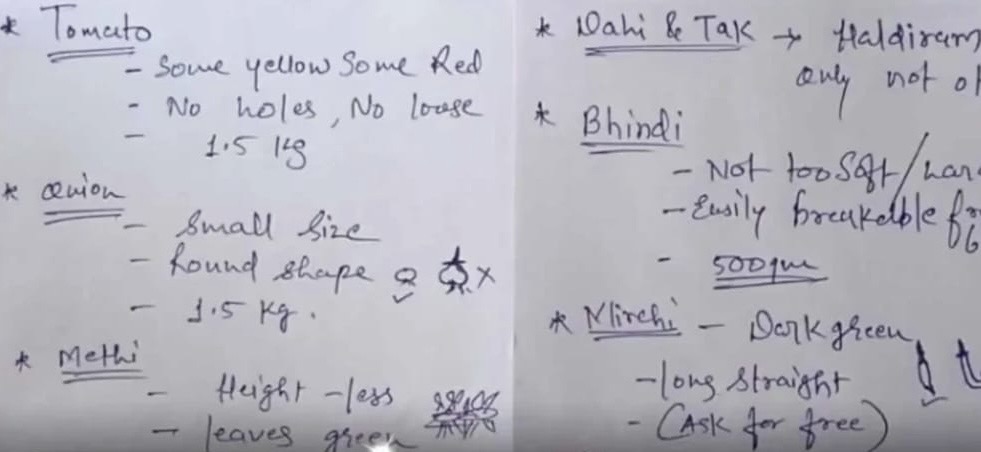 * Tomato
- Some yellow Some Red
- No holes, No loose
- 1.5 kg
* Onion
- Small Size
- Round shape
- 1.5 kg.
* Methi
- Height - less
- leaves green
* Dahi & Tak → Haldiram
only not
* Bhindi
- Not too Soft /
- Easily breakable
- 500gm
* Mirchi - Dark green
- long straight
- (Ask for free)